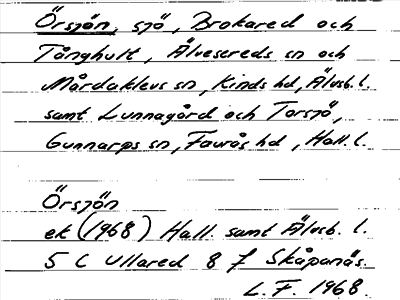 Örsjön, sjö, Brokared och
Tånghult, Älvsereds sn och
Mårdaklevs sn, Kinds hd, Älvsb. l.
samt Lunnagård och Torsjö,
Gunnarps sn, Faurås hd, Hall. l.
Örsjön
ek (1968) Hall. samt Älvsb. l.
5 C Ullared 8 f Skåpanäs.
L. F. 1968.